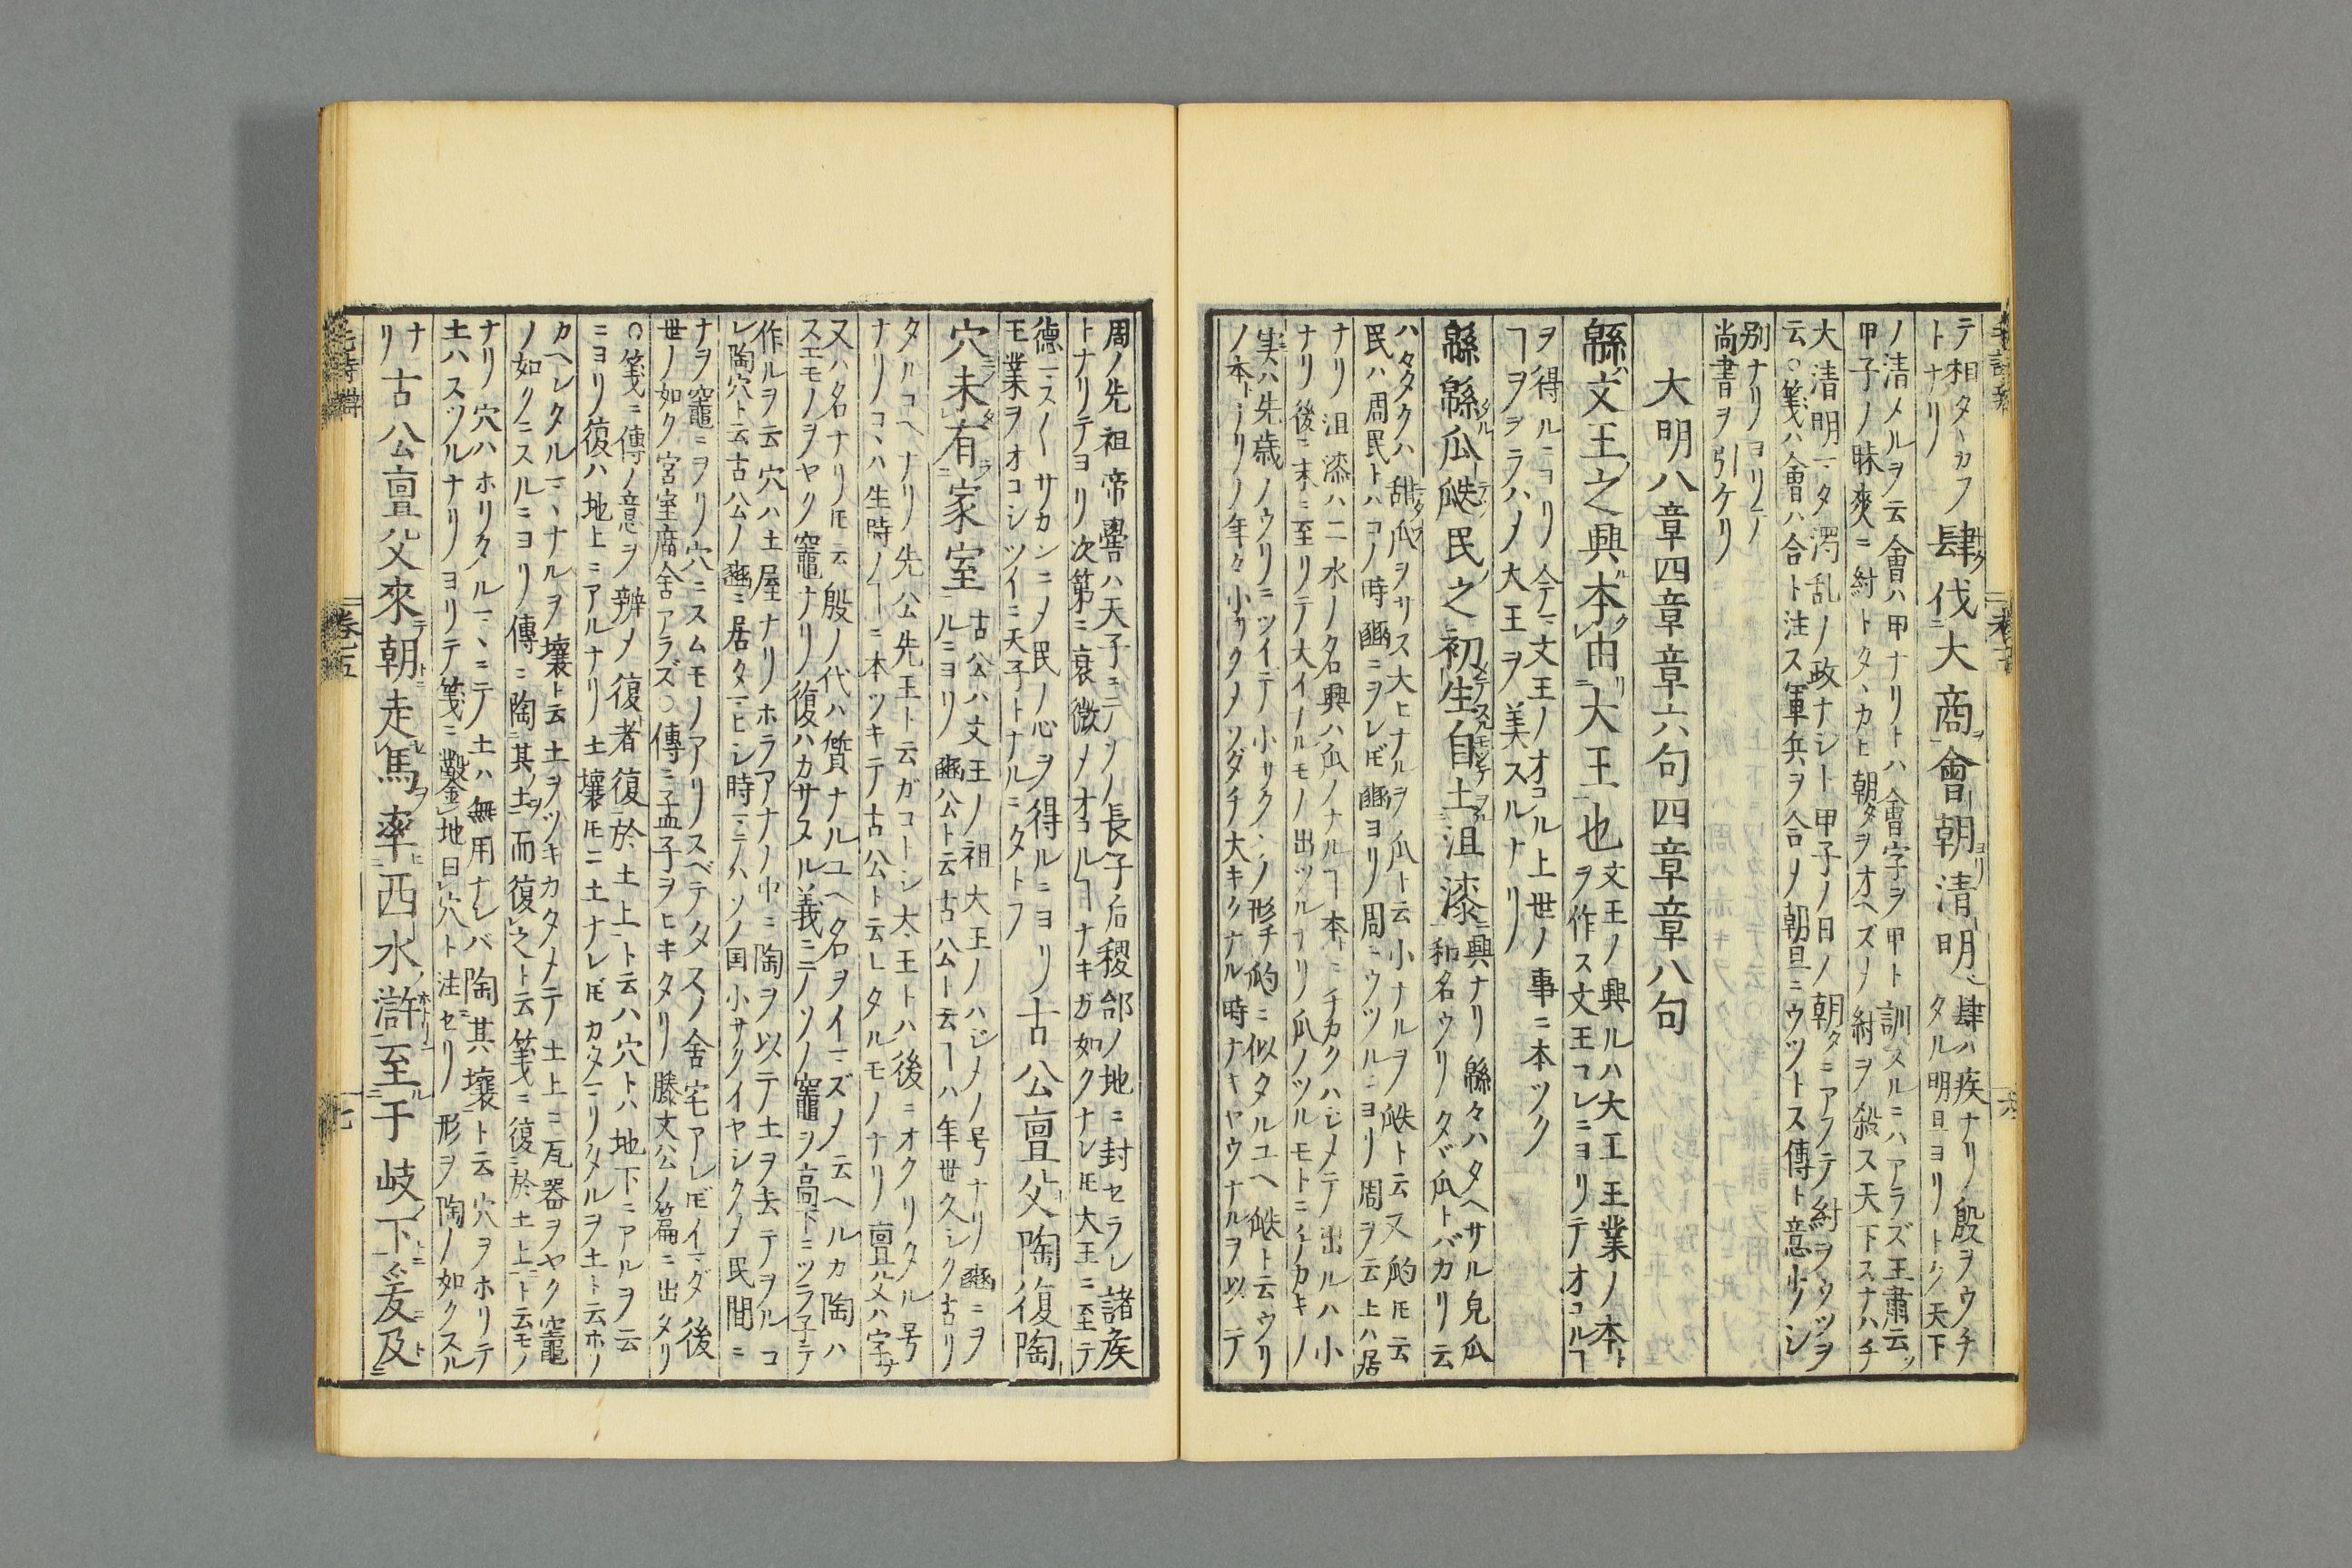 テ相タヽカフ
トナリ
肆伐大商會朝清明
肆ハ疾ナリ殷ヲウチ
タル明旦ヨリトク天下
ノ清メルヲ云會ハ甲ナリトハ會字ヲ甲ト訓スルニハアラズ王肅云
甲子ノ昧爽ニ紂トタヽカヒ朝タヲオヘズ紂ヲ殺ス天下スナハチ
大清明マタ濁乱ノ政ナシト甲子ノ日ノ朝タニアフテ紂ヲウツヲ
云○箋ハ會ハ合ト注ス軍兵ヲ合メ朝旦ニウツトス傳ト意
別ナリ
尚書ヲ引ケリ
大明八章四章章六句四章章八句
緜文王之興本由大王也
文王ノ興ルハ大王王業ノ本ト
ヲ作ス文王コレニヨリテオコルヿ
ヲ得ルニヨリ今マ文王ノオコル上世ノ事ニ本ツク
ヿヲヲラハメ大王ヲ美スルナリ
緜緜瓜瓞民之初生自土沮漆
興ナリ緜々ハタヘサル皃瓜
和名ウリタヾ瓜トバカリ云
ハタタクハ甜瓜ヲサス大ヒナルヲ瓜ト云小ナルヲ瓞ト云又瓝𪜈云
民ハ周民トハコノ時豳ニヲレ𪜈豳ヨリ周ニウツルニヨリ周ヲ云上ハ居
ナリ沮漆ハ二水ノ名興ハ瓜ノナルヿ本トニチカクハジメテ出ルハ小
ナリ後ニ末ニ至リテ大イナルモノ出ツル瓜ノツルモトニチカキノ
実ハ先歳ノウリニツイテ小サク形チ瓝ニ似タルユヘ瓞ト云ウリ
ノ本トヨリノ年々小サクメソダチ大キクナル時ナキヤウナルヲ以テ
周ノ先祖帝嚳ハ天子ニメソノ長子后稷邰ノ地ニ封セラレ諸矦
トナリテヨリ次第ニ衰微メオコルヿナキガ如クナレ𪜈大王ニ至テ
德マス〱サカンニメ民ノ心ヲ得ルニヨリ
モ業ヲオコシツイニ天子トナルニタトフ
古公亶父陶復陶
穴未有家室
古公ハ文王ノ祖大王ノハジメノ号ナリ豳ニヲ
ルニヨリ豳公ト云古公ト云ヿハ年世久シク古リ
タルコヘナリ先公先王ト云ガコトシ大王トハ後ニオクリタル号
ナリコヽハ生時ノヿニ本ツキテ古公ト云レタルモノナリ亶父ハ字ナ
又ハ名ナリ𪜈云殷ノ代ハ質ナルユヘ名ヲイマズメ云ヘルカ陶ハ
スエモノヲヤク竈ナリ復ハカサヌル義ニメソノ竈ヲ高下ニツラ子テ
作ルヲ云穴ハ土屋ナリホラアナノ中ニ陶ヲ以テ土ヲ去テヲルコ
レ陶穴ト云古公ノ豳ニ居タマヒシ時マテハソノ国小サクイヤシクメ民間ニ
ナヲ竈ニヲリ穴ニスムモノアリスベテタスノ舍宅アレ𪜈イマダ後
世ノ如ク宮室廟舍アラズ○傳ニ孟子ヲヒキタリ滕文公ノ篇ニ出タリ
○箋ニ傳ノ意ヲ辨メ復者復於土上ト云ハ穴トハ地下ニアルヲ云
ニヨリ復ハ地上ニアルナリ土壤𪜈ニ土ナレ𪜈カタマリタルヲ土ト云ホノ
カヘレタルマヽナルヲ壤ト云土ヲツキカタメテ土上ニ瓦器ヲヤク竈
ノ如クニスルニヨリ傳ニ陶其土而復之ト云箋ニ復於土上ト云モノ
ナリ穴ハホリタルマヽニテ土ハ無用ナレバ陶其壤ト云穴ヲホリテ
土ハスツルナリヨリテ箋ニ鑿地曰穴ト注セリ形ヲ陶ノ如クスル
ナ
リ
古公亶父來朝走馬率西水滸至于岐下爰及
卷五
七